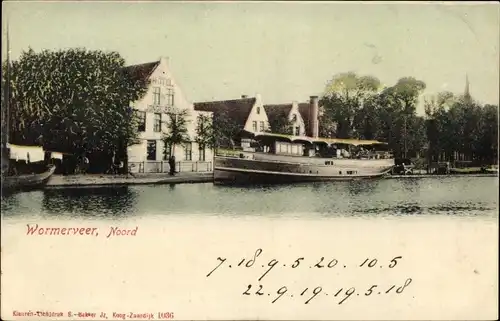 Wormerveer, Noord
7.18.9.5 20.10.5
22.9.19.19.5.18
Kleuren-Lichtdruk B.-Bakker Jz, Koog-Zaandijk 1036